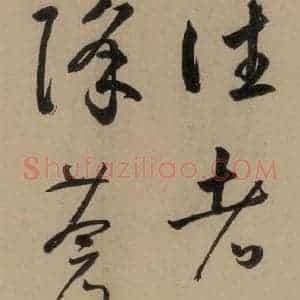 往者
除
Shufaziliao.COM